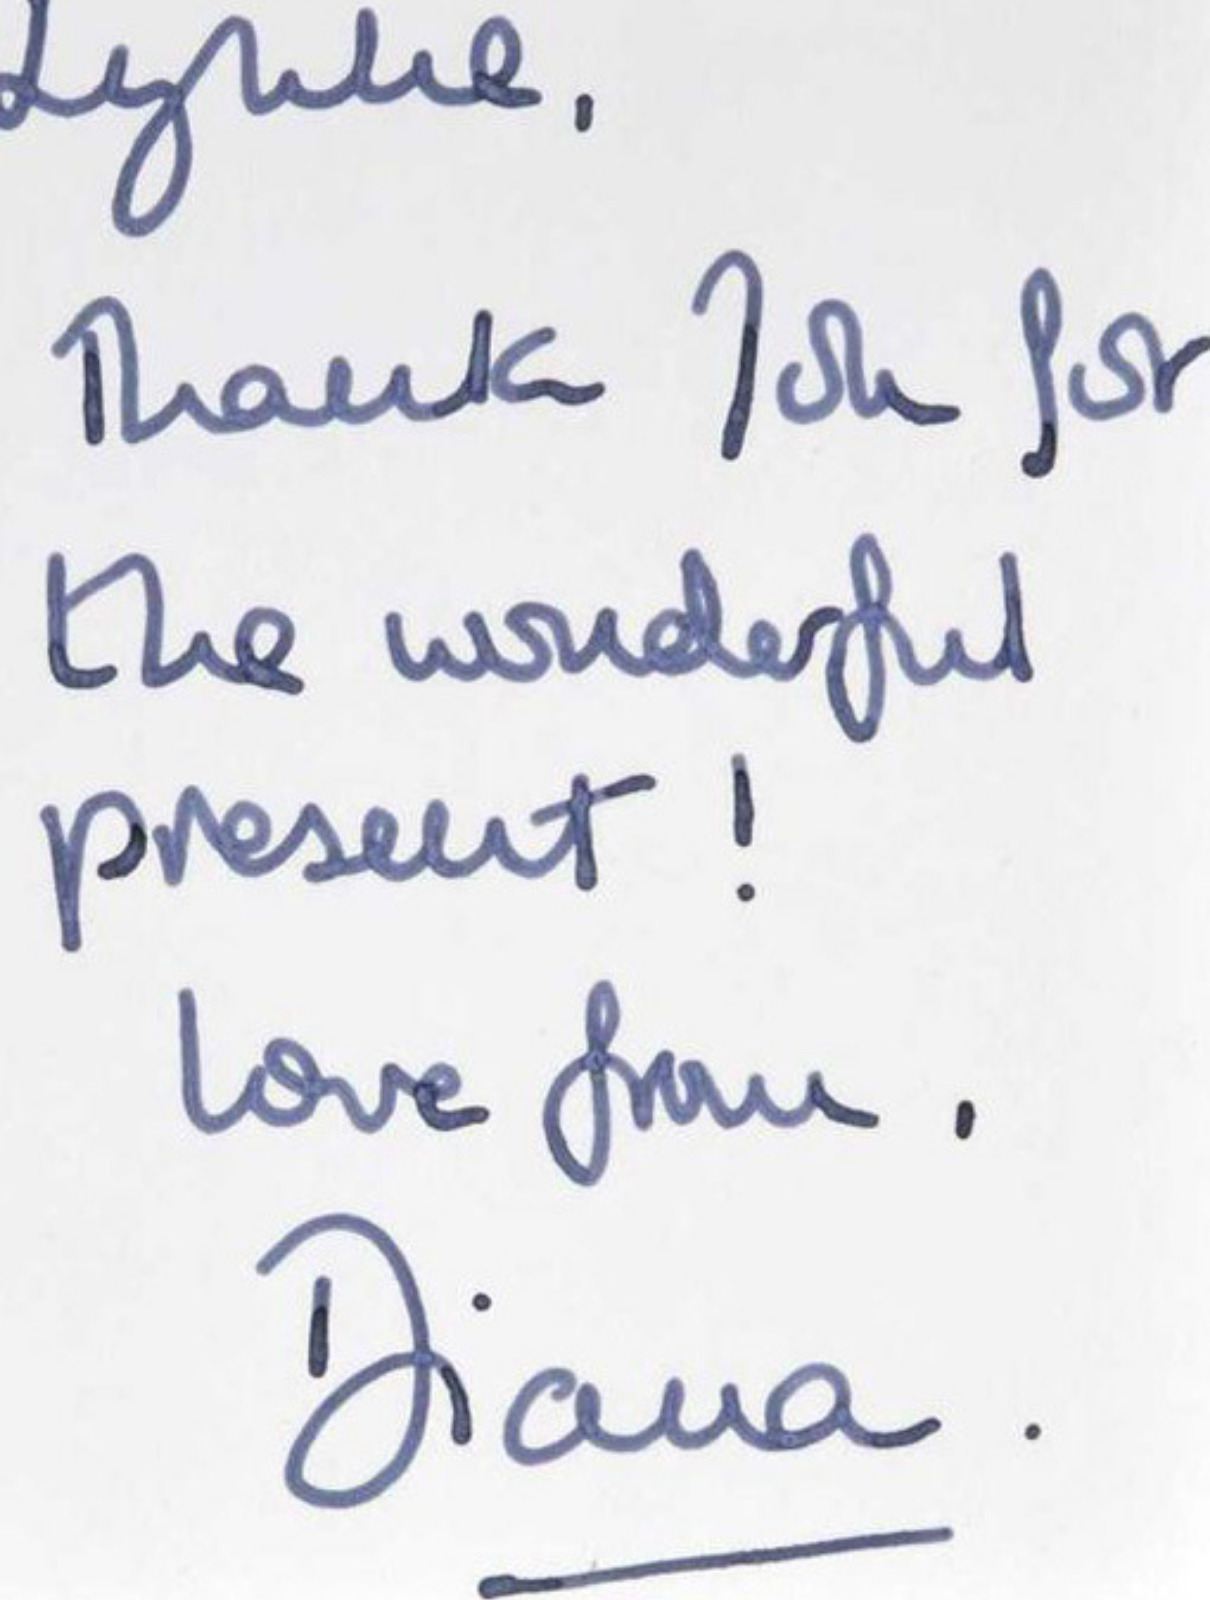 Lynne,
Thank You for
the wonderful
present!
love from,
Diana.